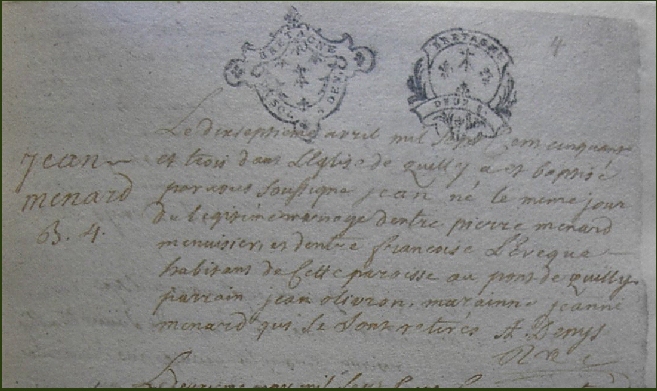 4
BRETAGNE
BRETAGNE
DEUX
Le dixseptieme avril mil sept cent cinquante
et trois dans L'Eglise de Quilly a eté baptisé
par nous soussigné jean né le meme jour
du legitime mariage dentre pierre menard
menuisier, et dentre francoise L'Evequa
habitans de cette paroisse au pont de Quilly
parrain jean olivron, marainne jeanne
menard qui se sont retirés A. Denys
jean
menard
B. 4.